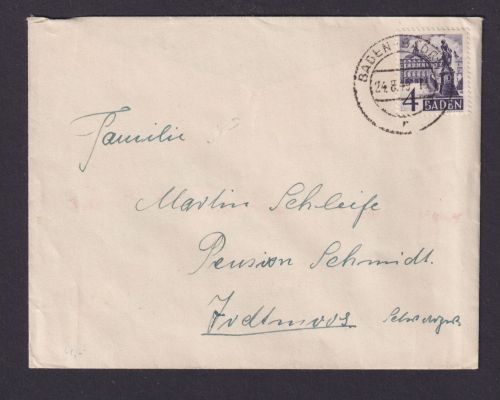 BADEN-BADEN
24.8.
4 BADEN
Familie
Martin Schleife
Pension Schmidt.
Todtmoos. Schwarzw.